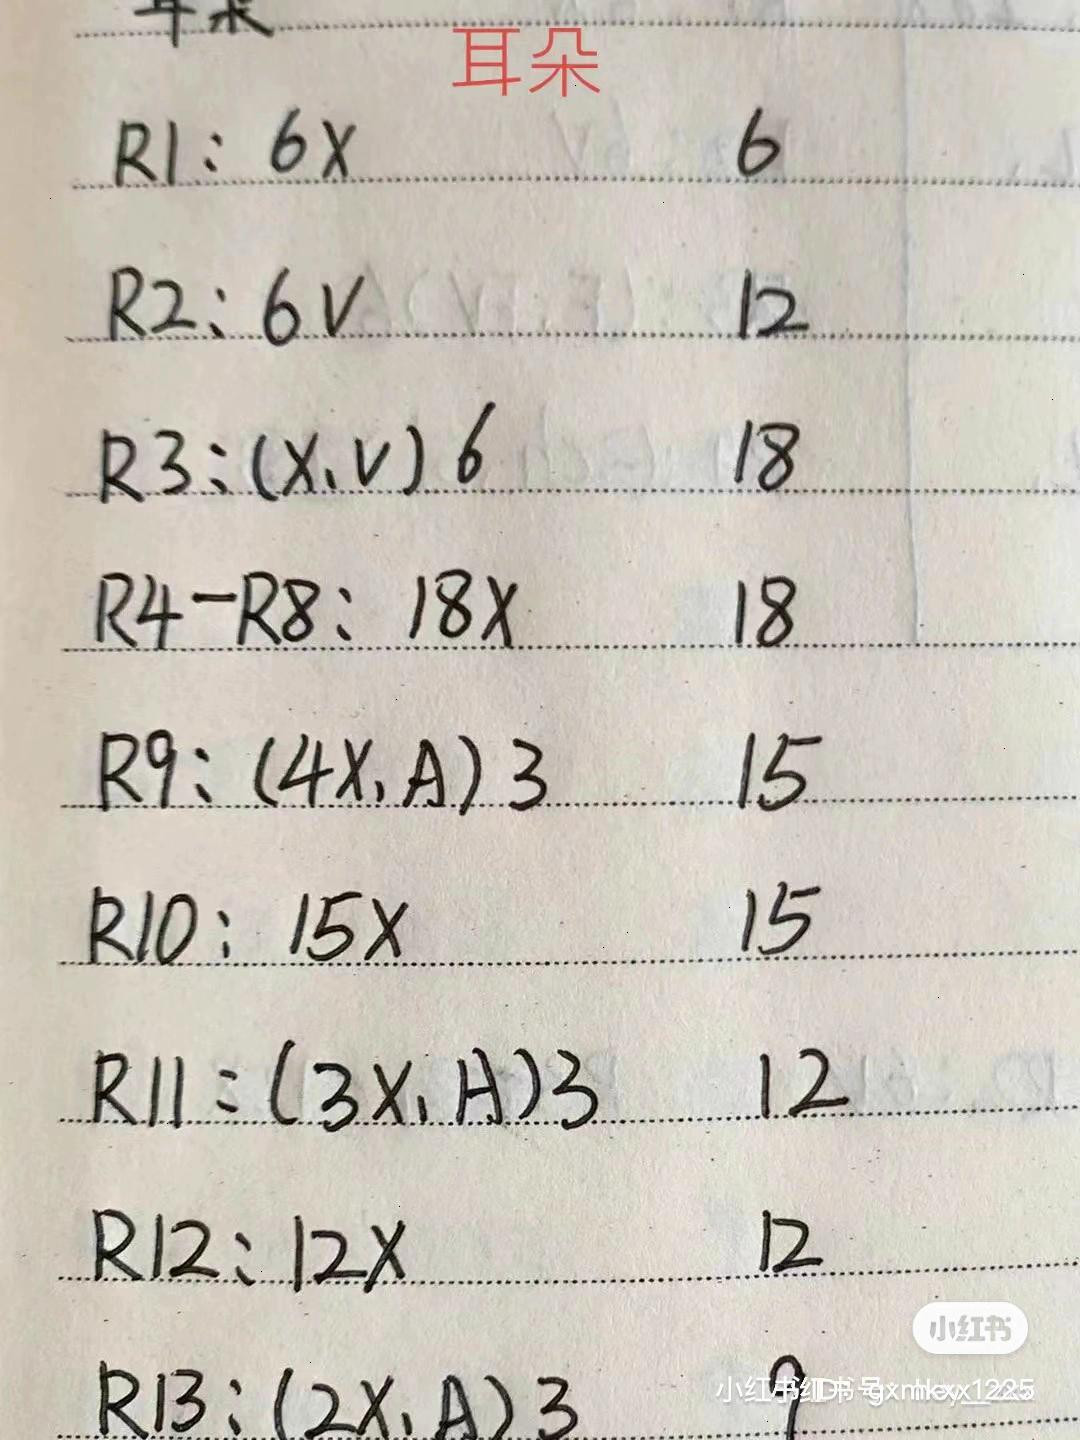 耳朵
耳朵
R1: 6X 6
R2: 6V 12
R3: (X, V) 6 18
R4-R8: 18X 18
R9: (4X, A) 3 15
R10: 15X 15
R11: (3X, A) 3 12
R12: 12X 12
小红书
R13: (2X, A) 3 9